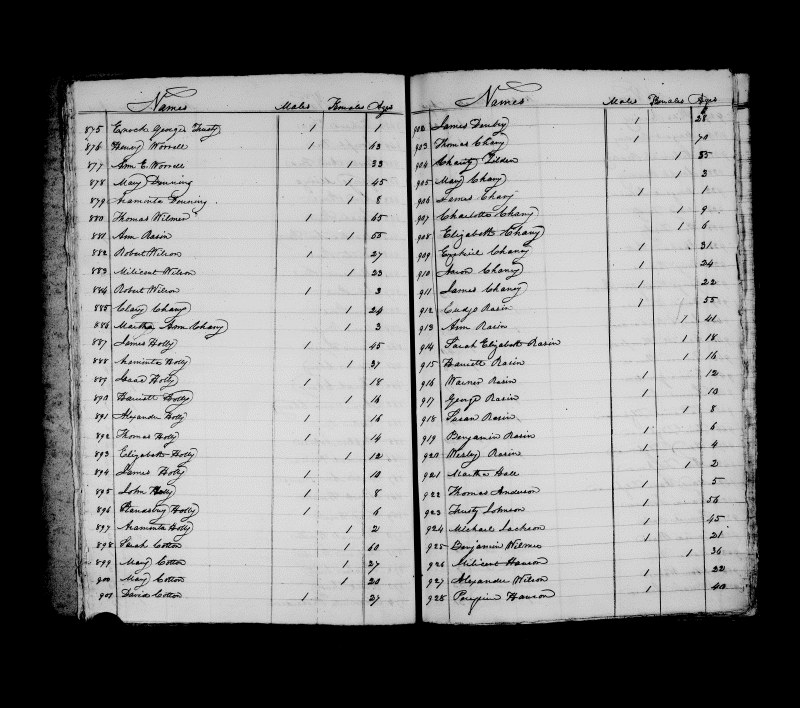 Names Males Females Ages
875 Enoch George Trusty 1 1
876 Henry Worrell 1 43
877 Ann E. Worrell 1 33
878 Mary Dunning 1 45
879 Araminta Dunning 1 8
880 Thomas Wilmer 1 65
881 Ann Rasin 1 55
882 Robert Wilson 1 27
883 Milicent Wilson 1 23
884 Robert Wilson 1 3
885 Clary Chany 1 24
886 Martha Ann Chany 1 3
887 James Holly 1 45
888 Araminta Holly 1 37
889 Isaac Holly 1 18
890 Harriett Holly 1 16
891 Alexander Holly 1 16
892 Thomas Holly 1 14
893 Elizabeth Holly 1 12
894 James Holly 1 10
895 John Holly 1 8
896 Standsbury Holly 1 6
897 Araminta Holly 1 2
898 Sarah Cotton 1 60
899 Mary Cotton 1 27
900 Mary Cotton 1 20
901 David Cotton 1 27
Names Males Females Ages
902 James 1 28
903 Thomas Chany 1 70
904 Charity Tilden 1 35
905 Mary Chany 1 3
906 James Chany 1 1
907 Charlotte Chany 1 9
908 Elizabeth Chany 1 6
909 Ezekiel Chaney 1 31
910 Jacob Chaney 1 24
911 James Chaney 1 22
912 Cudjo Rasin 1 55
913 Ann Rasin 1 41
914 Sarah Elizabeth Rasin 1 18
915 Harriett Rasin 1 16
916 Warner Rasin 1 12
917 George Rasin 1 10
918 Susan Rasin 1 8
919 Benjamin Rasin 1 6
920 Wesley Rasin 1 4
921 Martha Hall 1 2
922 Thomas Anderson 1 5
923 Trusty Johnson 1 56
924 Michael Jackson 1 45
925 Benjamin Wilmer 1 21
926 Milicent Hanson 1 36
927 Alexander Wilson 1 22
928 Peregrin Hanson 1 40